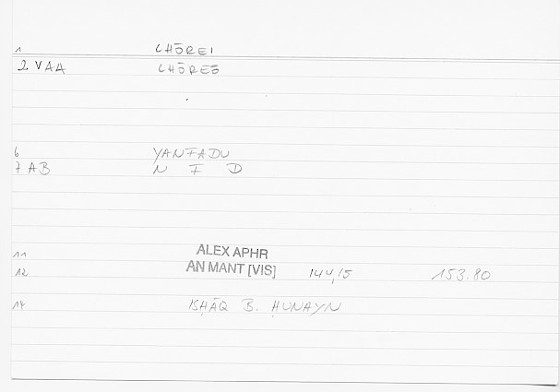 1 CHŌREI
2 VAA CHŌREŌ
6 YANFADU
7 AB N F D
11 ALEX APHR
12 AN MANT [VIS] 144,15 153.80
14 ISḤĀQ B. ḤUNAYN